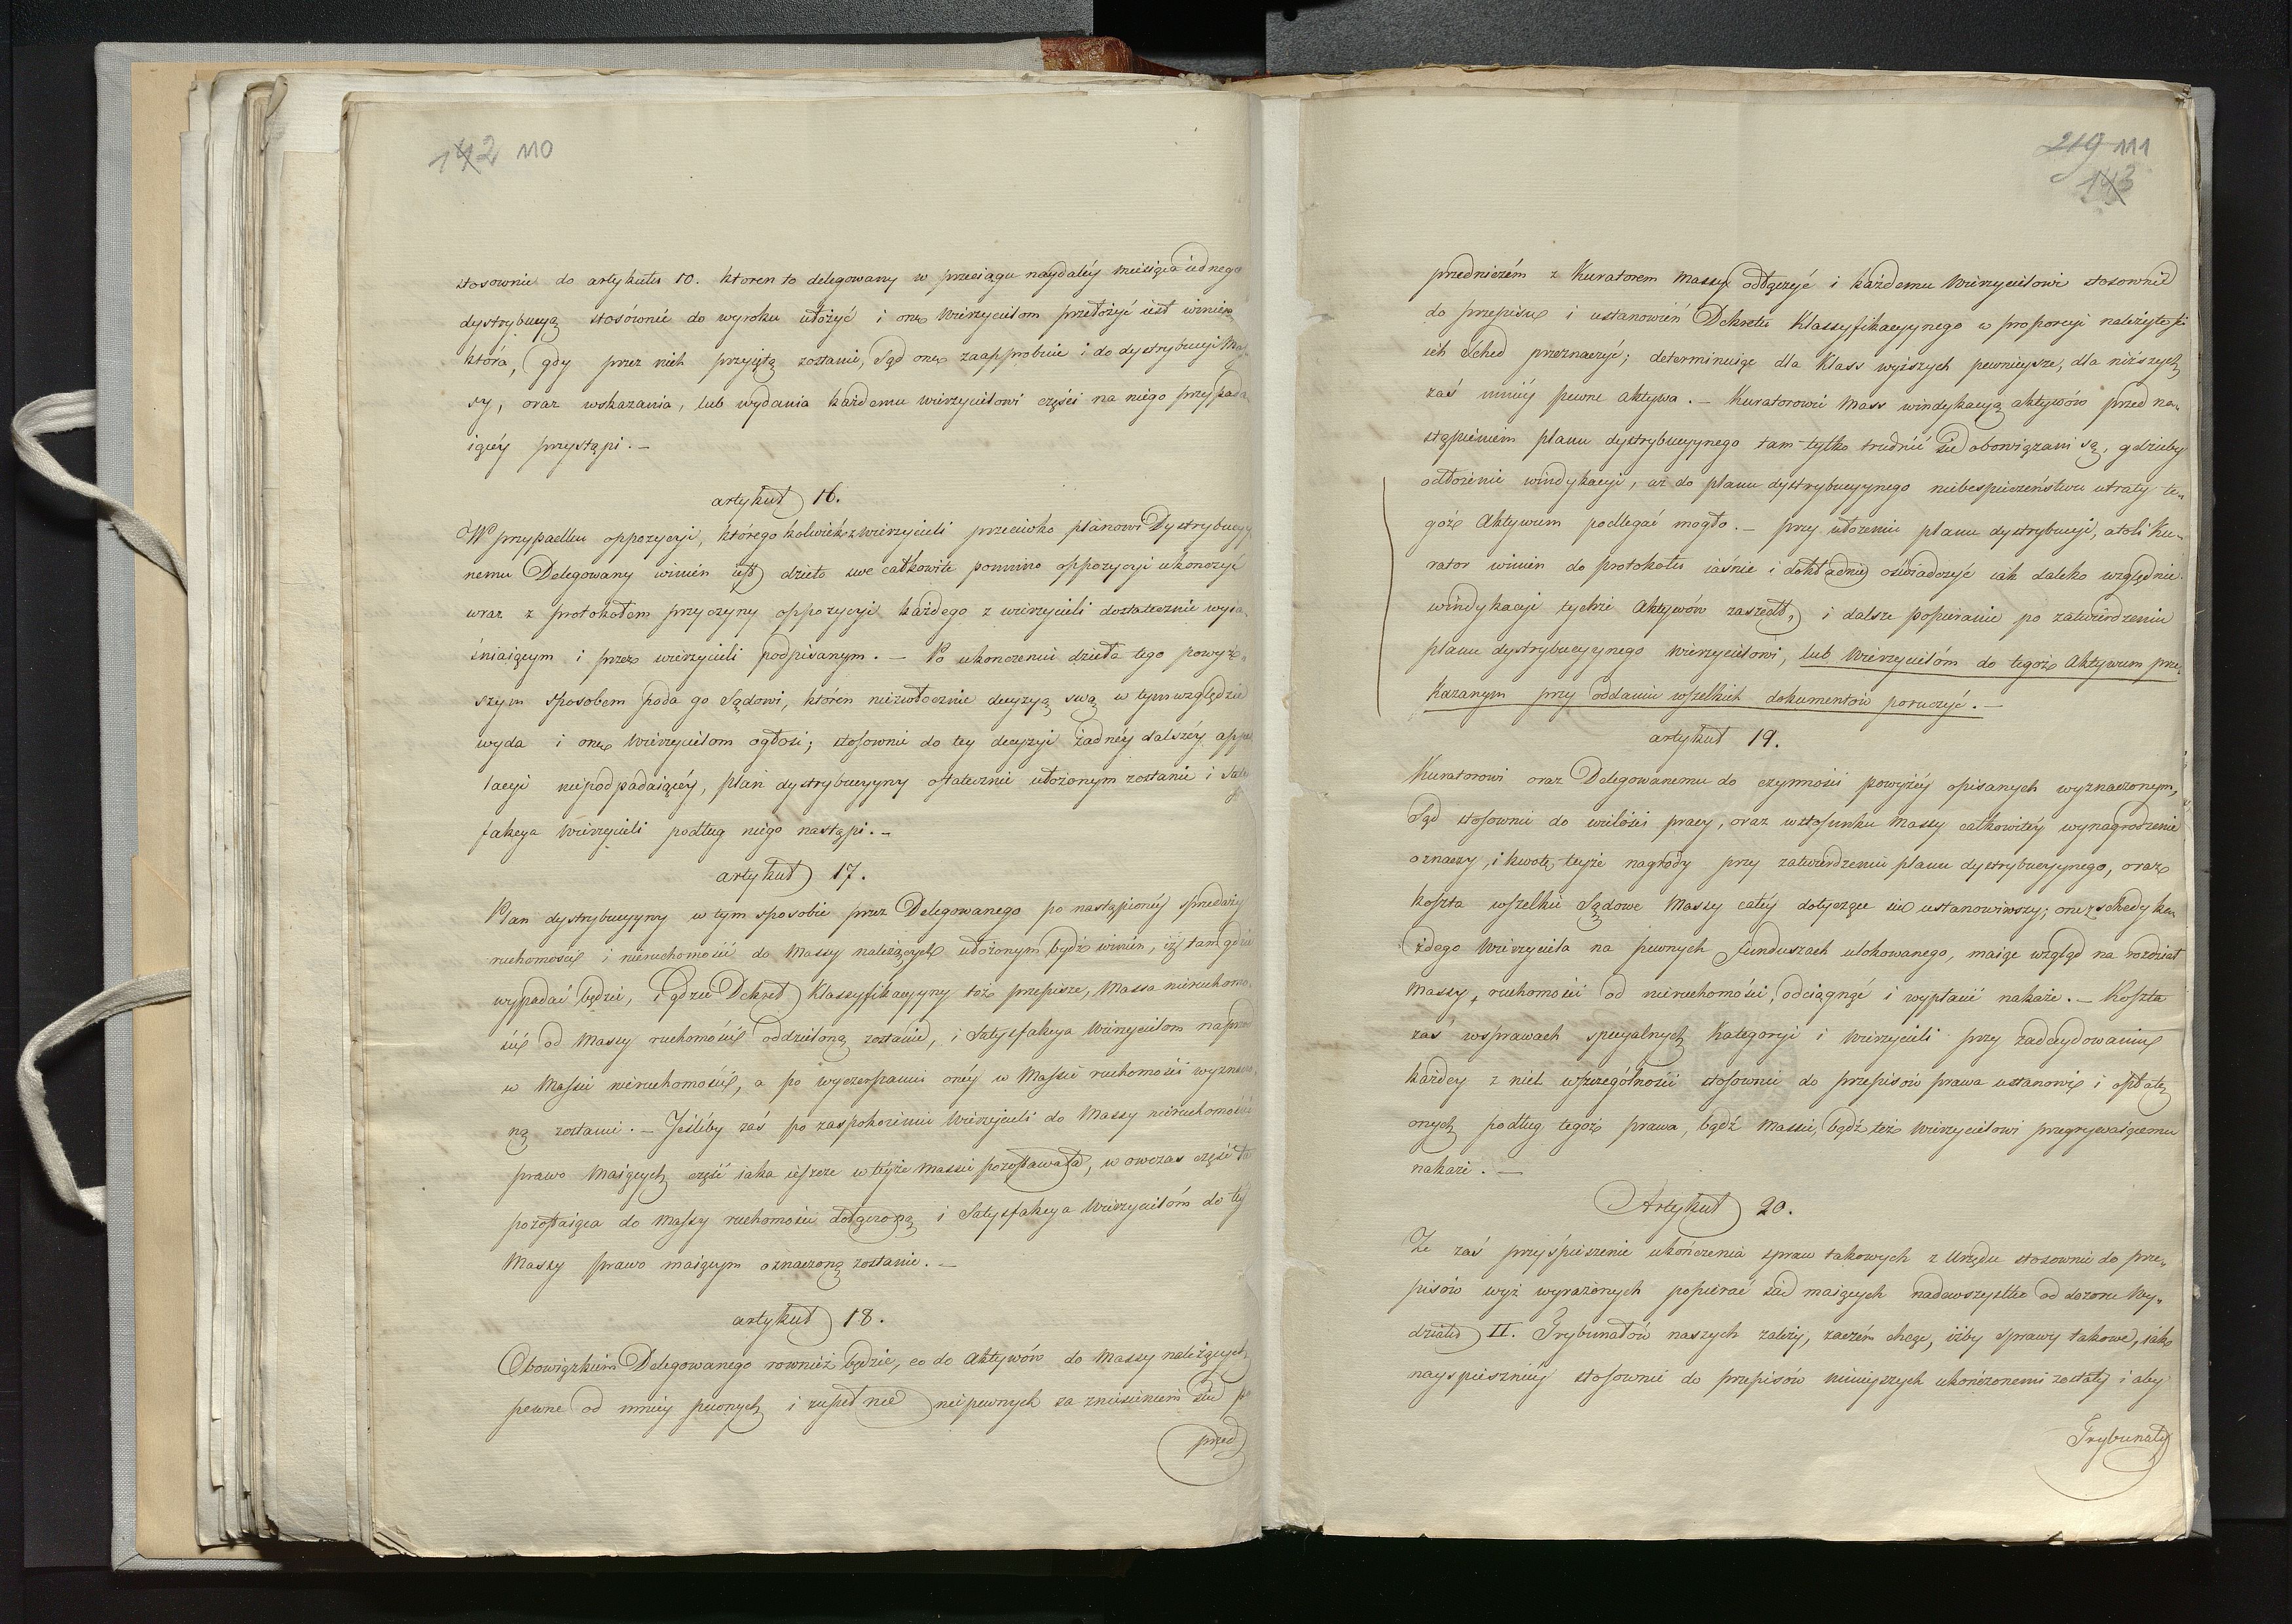 142 110
stosownie do artykułu 10. ktoren to delegowany w przeciągu naydaléy miesiąca iednego
dystrybucyą stosównié do wyroku ułożyć i onę Wierzycielom przełożyć iest winien
która, gdy przez nich przyiętą zostanie, Sąd onę zaapprobuie i do dystrybucyi Mas-
sy, oraz wskazania, lub wydania każdemu wierzycielowi części na niego przypada-
iącéy przystąpi. —
artykuł 16.
W przypadku oppozycyi, którego kolwiek z wierzycieli przeciwko planowi Dystrybucyy-
nemu Delegowany winien iest dzieło swe całkowite pomimo oppozycyi ukonczyć
wraz z protokołem przyczyny oppozycyi każdego z wierzycieli dostatecznie wyia-
śniaiącym i przez wierzycieli podpisanym. — Po ukonczeniu dzieła tego powyż-
szym sposobem poda go Sądowi, któren niezwłocznie decyzyą swą w tym względzie
wyda i onę Wierzycielom ogłosi; stosownie do tey decyzyi żadnéy dalszéy appel
lacyi niepodpadaiącéy, plan dystrybucyyny ostatecznie ułożonym zostanie i Satis
fakcya Wierzycieli podług niego nastąpi. —
artykuł 17.
Plan dystrybucyyny w tym sposobie przez Delegowanego po nastąpionéy sprzedaży
ruchomości i nieruchomości do Massy należących ułożonym bydź winien, iż tam gdzie
wypadać będzie, i gdzie Dekret Klassyfikacyyny toż przepisze, Massa nieruchomo-
ści od Massy ruchomości oddzieloną zostanie, i Satysfakcya Wierzycielom naprzód
w Massie nieruchomości, a po wyczerpaniu onéy w Massie ruchomości wyznaczo-
ną zostanie. — Jeśliby zaś po zaspokoieniu Wierzycieli do Massy nieruchomości
prawo maiących część iaka ieszcze w téyże Massie pozostawała, w owczas część ta
pozostaiąca do Massy ruchomości dołączoną i Satysfakcya Wierzycielóm do téy
Massy prawo maiącym oznaczoną zostanie. —
artykuł 18.
Obowiązkiem Delegowanego rownież będzie, co do Aktywów do Massy należących
pewne od mniey pewnych i zupełnie niepewnych za zniesieniem się po
przed
219 111
143
przedniczém z Kuratorem Massy odłączyć i każdemu Wierzycielowi stosownie
do przepisu i ustanowień Dekretu Klassyfikacyynego w proporcyi należytości
ich Sched przeznaczyć; determinuiąc dla Klass wyższych pewnieysze, dla niższych
zaś mniéy pewne aktywa. — Kuratorowie Mass windykacyą aktywów przed na-
stąpieniem planu dystrybucyynego tam tylko trudnić się obowiązani są, gdzieby
odłożenie windykacyi, aż do planu dystrybucyynego niebespieczeństwu utraty te-
góż Aktywum podlegać mogło. — przy ułożeniu planu dystrybucyi, atoli Ku-
rator winien do protokołu iaśnie i dokładnie oświadczyć iak daleko względnie
windykacyi tychże Aktywów zaszedł, i dalsze popieranie po zatwierdzeniu
planu dystrybucyynego Wierzycielowi, lub Wierzycielóm do tegoż Aktywum prze-
kazanym przy oddaniu wszelkich dokumentów poruczyć. —
artykuł 19.
Kuratorowi oraz Delegowanemu do czynności powyżéy opisanych wyznaczonym,
Sąd stosownie do wielości pracy, oraz w stosunku Massy całkowitéy wynagrodzenie
oznaczy, i kwotę teyże nagrody przy zatwierdzeniu planu dystrybucyynego, oraz
koszta wszelkie Sądowe Massy całéy dotyczące się ustanowiwszy; one z schedy ka-
żdego Wierzyciela na pewnych Funduszach ulokowanego, maiąc wzgląd na rozdział
Massy, ruchomości od nieruchomości, odciągnąć i wypłacić nakaże. — Koszta
zaś w sprawach specyalnych Kategoryi i Wierzycieli przy zadecydowaniu
każdey z nich w szczególności stosownie do przepisów prawa ustanowi i opłatę
onych podług tegoż prawa, bądź Massie, bądź też Wierzycielowi przegrywaiącemu
nakaże. —
Artykuł 20.
Że zaś przyśpieszenie ukończenia spraw takowych z Urzędu stosownie do prze-
pisów wyż wyrażonych popierać się maiących nadewszystko od dozoru Wy-
działu II. Trybunałów naszych zależy, zaczém chcę, iżby sprawy takowe, iak
nayspieszniéy stosownie do przepisów ninieyszych ukończonemi zostały i aby
Trybunały